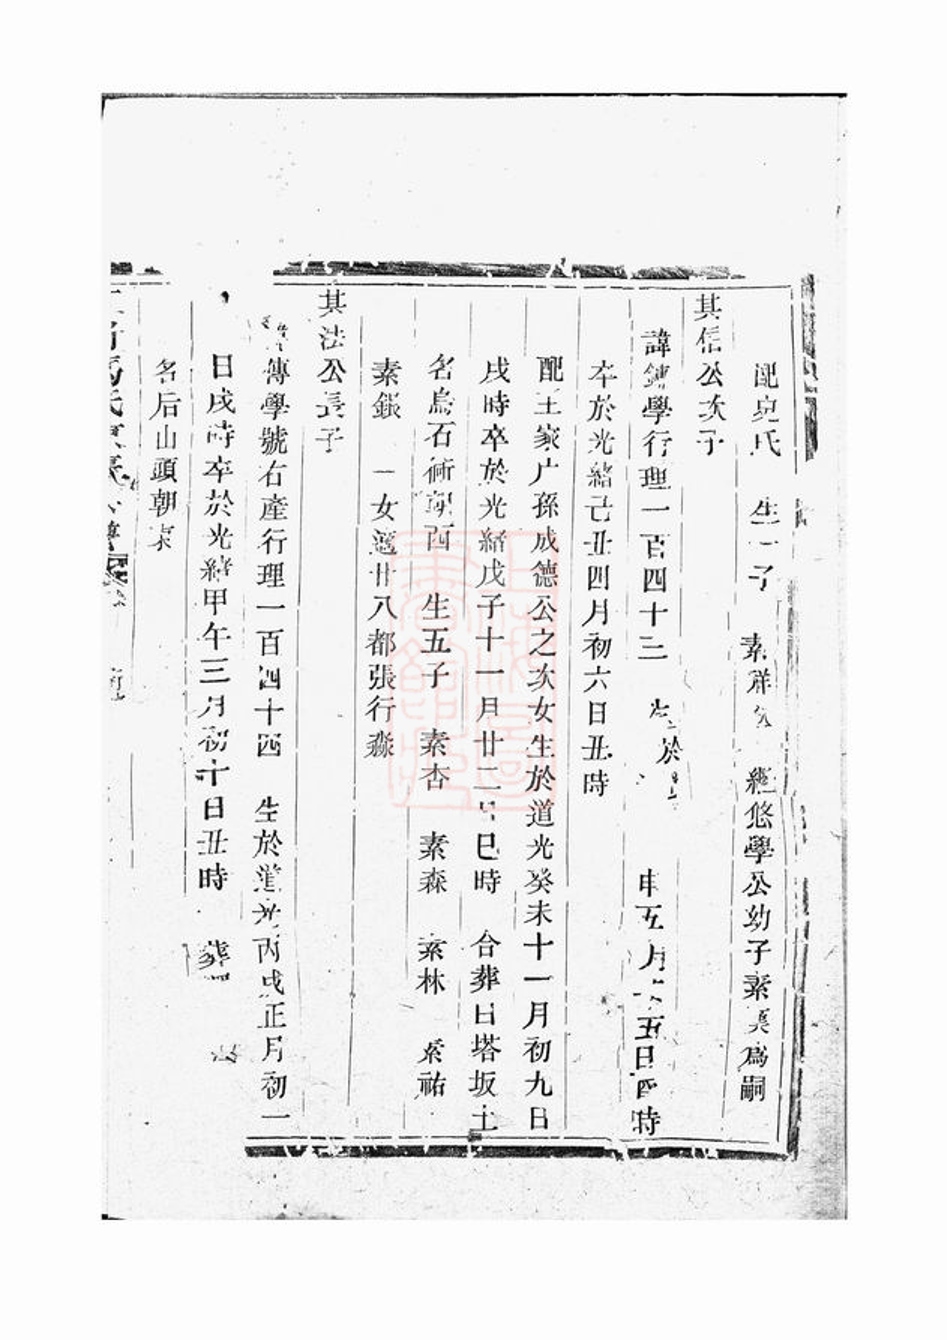 配 氏 生一子 素 繼悠學公幼子素 爲嗣
其信公次子
諱 學行理一百四十二 生於 申五月 五日酉時
卒於光緒己丑四月初六日丑時
配王家户孫成德公之次女生於道光癸未十一月初九日
戌時卒於光緒戊子十一月廿二日巳時 合葬日塔坂土
名烏石 朝西 生五子 素杏 素森 素林 素祐
素鋹 一女 廿八都張行淼
其法公長子
傳學號右產行理一百四十四 生於道光丙戌正月初一
日戌時卒於光緒甲午三月初十日丑時 葬
名后山頭朝東